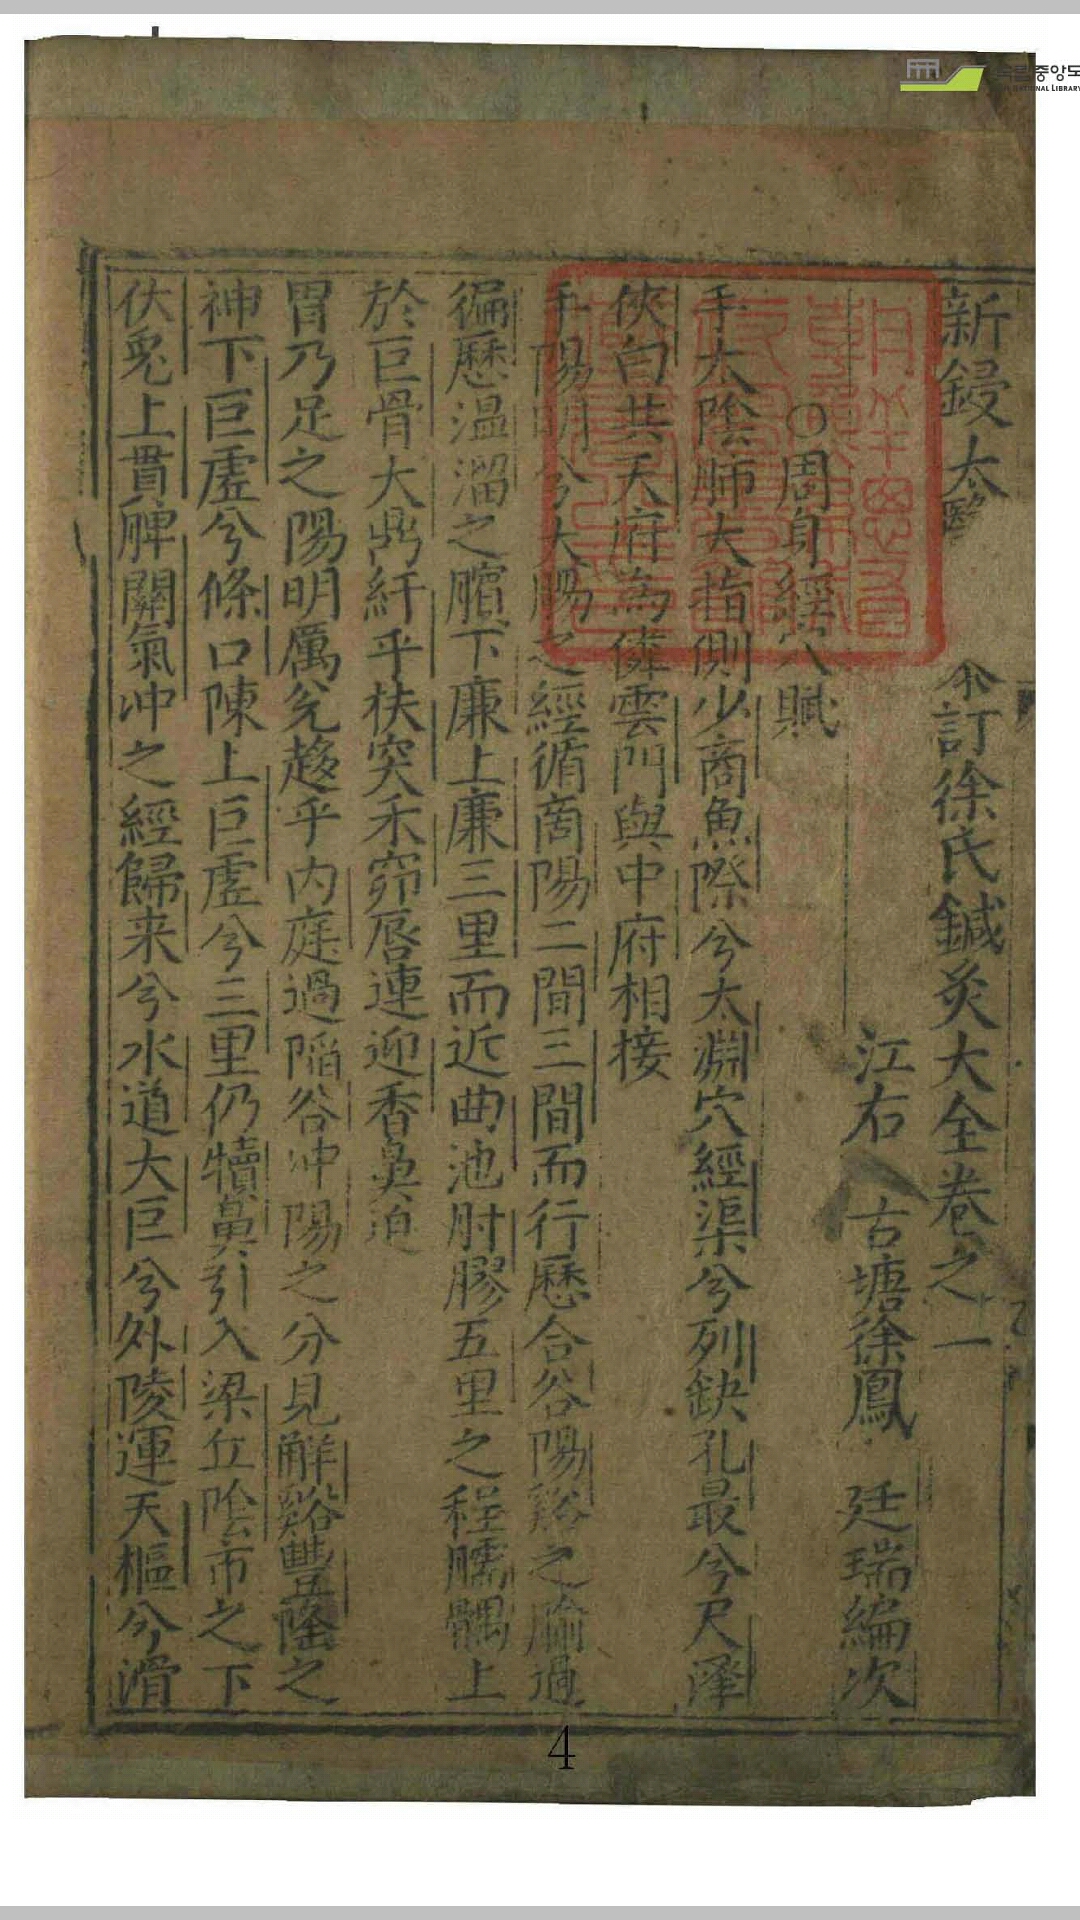 新鋟太醫 訂徐氏鍼灸大全卷之一
江右 古塘徐鳳 廷瑞編次
○周身經穴賦
手太陰肺大指側少商魚際兮太淵穴經渠兮列缺孔最兮尺澤
俠白共天府為隣雲門與中府相接
手陽明兮大腸之經循商陽二間三間而行歷合谷陽谿之腧過
徧歷温溜之臏下廉上廉三里而近曲池肘膠五里之程臑髃上
於巨骨大鼎紆乎扶突禾窌唇連迎香鼻迫
胃乃足之陽明厲兊趍乎内庭過陷谷冲陽之分見解谿豐隆之
神下巨虛兮條口陳上巨虛兮三里仍犢鼻引入梁丘陰市之下
伏兎上貫髀關氣冲之經歸来兮水道大巨兮外陵運天樞兮滑
중앙도
NATIONAL LIBRARY
4